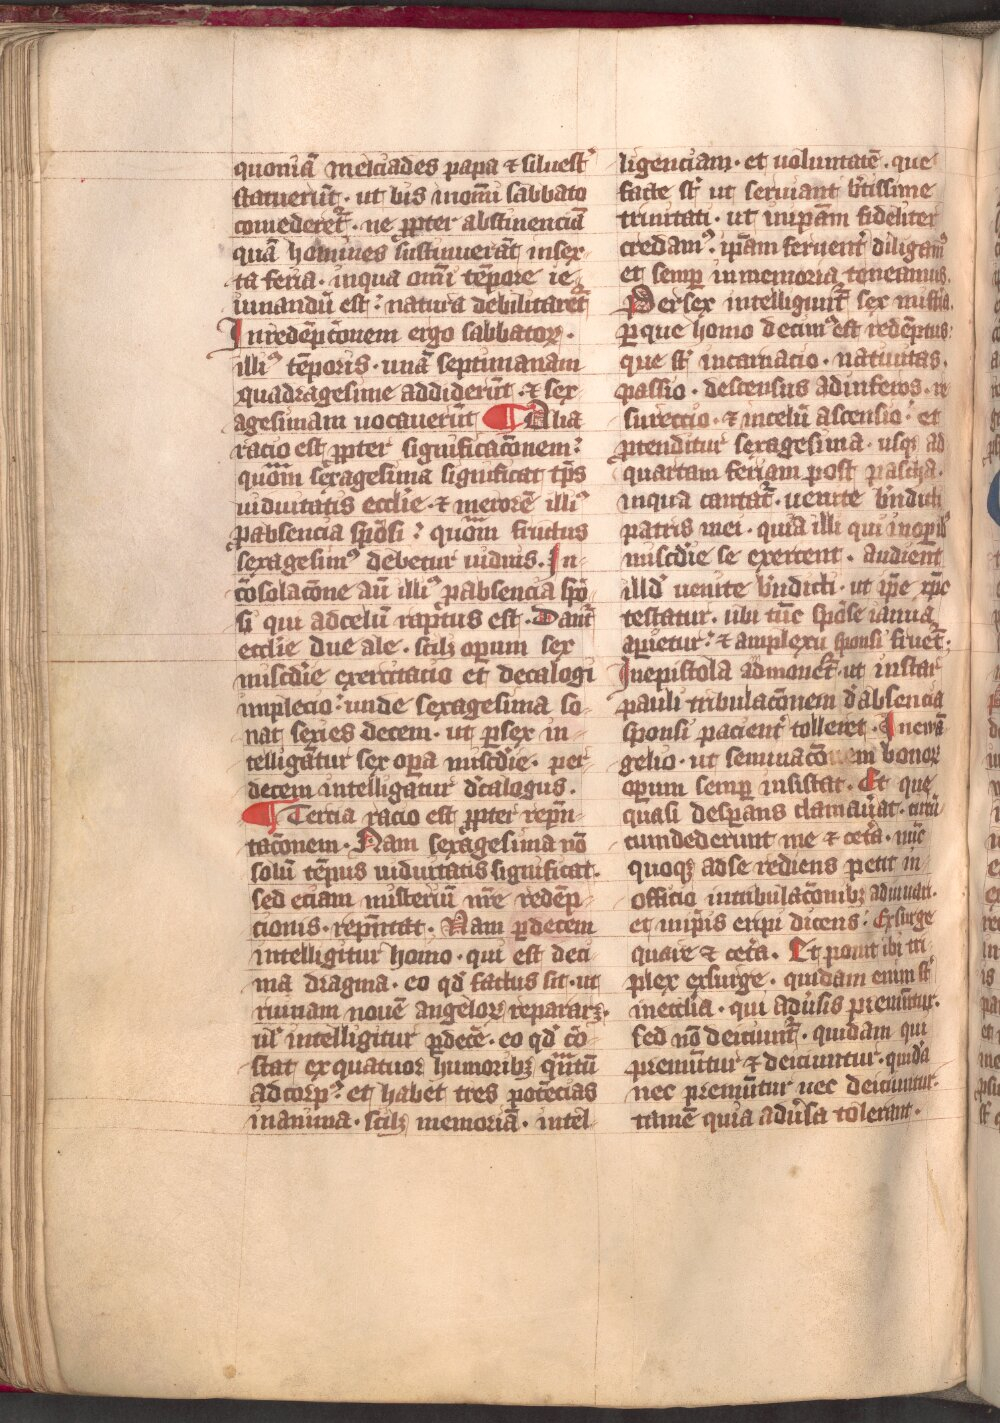 quoniā melciades papa ⁊ siluestꝰ
statuerūt · ut bis inomni sabbato
comederet᷑ · ne ꝓpter abstinenciā
quā homines sustinuerāt insex-
ta feria · inqua omni tēpore ie-
iunandū est : natura debilitaret᷑
Inredēpcōnem ergo sabbatoꝝ ·
illiꝰ tēporis · unā septimanam
quadragesime addiderūt · ⁊ sex
agesimam uocauerūt ¶ Alia
racio est ꝓpter significacōnem :
quom̄ sexagesima significat tp̄s
uiduitatis ecclie · ⁊ merorē illiꝰ
ꝑabsencia spōsi : quom̄ fructus
sexagesimꝰ debetur uiduis · In-
cōsolacōne aū illiꝰ ꝑabsencia spō-
si qui adcelū raptus est · Dant᷑
ecclie due ale · scilꝫ operum sex
misc̄die exercitacio et decalogi
implecio : unde sexagesima so-
nat sexies decem · ut ꝑsex in-
telligātur sex oꝑa misc̄die · per
decem intelligatur d̄calogus ·
¶ Tercia racio est ꝓpter rep̄n-
tacōnem · Nam sexagesima nō
solū tēpus uiduitatis significat ·
sed eciam misteriū nr̄e redēp-
cionis · rep̄ntat · Nam ꝑdecem
intelligitur homo · qui est deci
ma dragma · eo qd̄ factus sit · ut
ruinam nouē angeloꝝ repararꝫ ·
ul̄ intelligitur ꝑdecē · eo qd̄ cō-
stat ex quatuor humoribꝫ qn̄tū
adcorpꝰ : et habet tres potēcias
inanima · scilꝫ memoriā · intel-
ligenciam · et uoluntatē · que
facte st̄ ut seruiant btīssime
trinitati · ut inip̄am fideliter
credamꝰ · ip̄am feruent̄ diligamꝰ
et semꝑ inmemoria teneamus
Persex intelligunt᷑ sex misteria ·
ꝑque homo decimꝰ est redēptus :
que st̄ incarnacio · natiuitas ·
passio · descensus adinferos · re
surectio · ⁊ incelū ascensio : et
ꝓtenditur sexagesima · usqꝫ ad
quartam feriam post pascha ·
inqua cantat᷑ · uenite bn̄dicti
patris mei · quia illi qui inoꝑibꝰ
misc̄die se exercent · audient
illd̄ uenite bn̄dicti · ut ip̄e xp̄c
testatur · ubi tūc spōse ianua
aperietur : ⁊ amplexu sponsi fruet᷑ ·
Inepistola admonet᷑ · ut instar
pauli tribulacōnem d̄absencia
sponsi pacient̄ tolleret · Ineuā
gelio · ut seminacōnem bonoꝝ
oꝑum semꝑ insistat · Et que
quasi desꝑans clamauat · circū
cumdederunt me ⁊ cetā · nūc
quoqꝫ adse rediens petit in
officio intribulacōnibꝫ adiuuari ·
et inip̄is eripi dicens : Exsurge
quare ⁊ cetā · Et ponit ibi tri-
plex exsurge · quidam enim st̄
inecclia · qui adūsis premūtur ·
sed nō deiciunt᷑ · quidam qui
premūtur ⁊ deiciuntur · quidā
nec premūtur nec deiciuntur ·
tamē quia adūsa tolerant ·